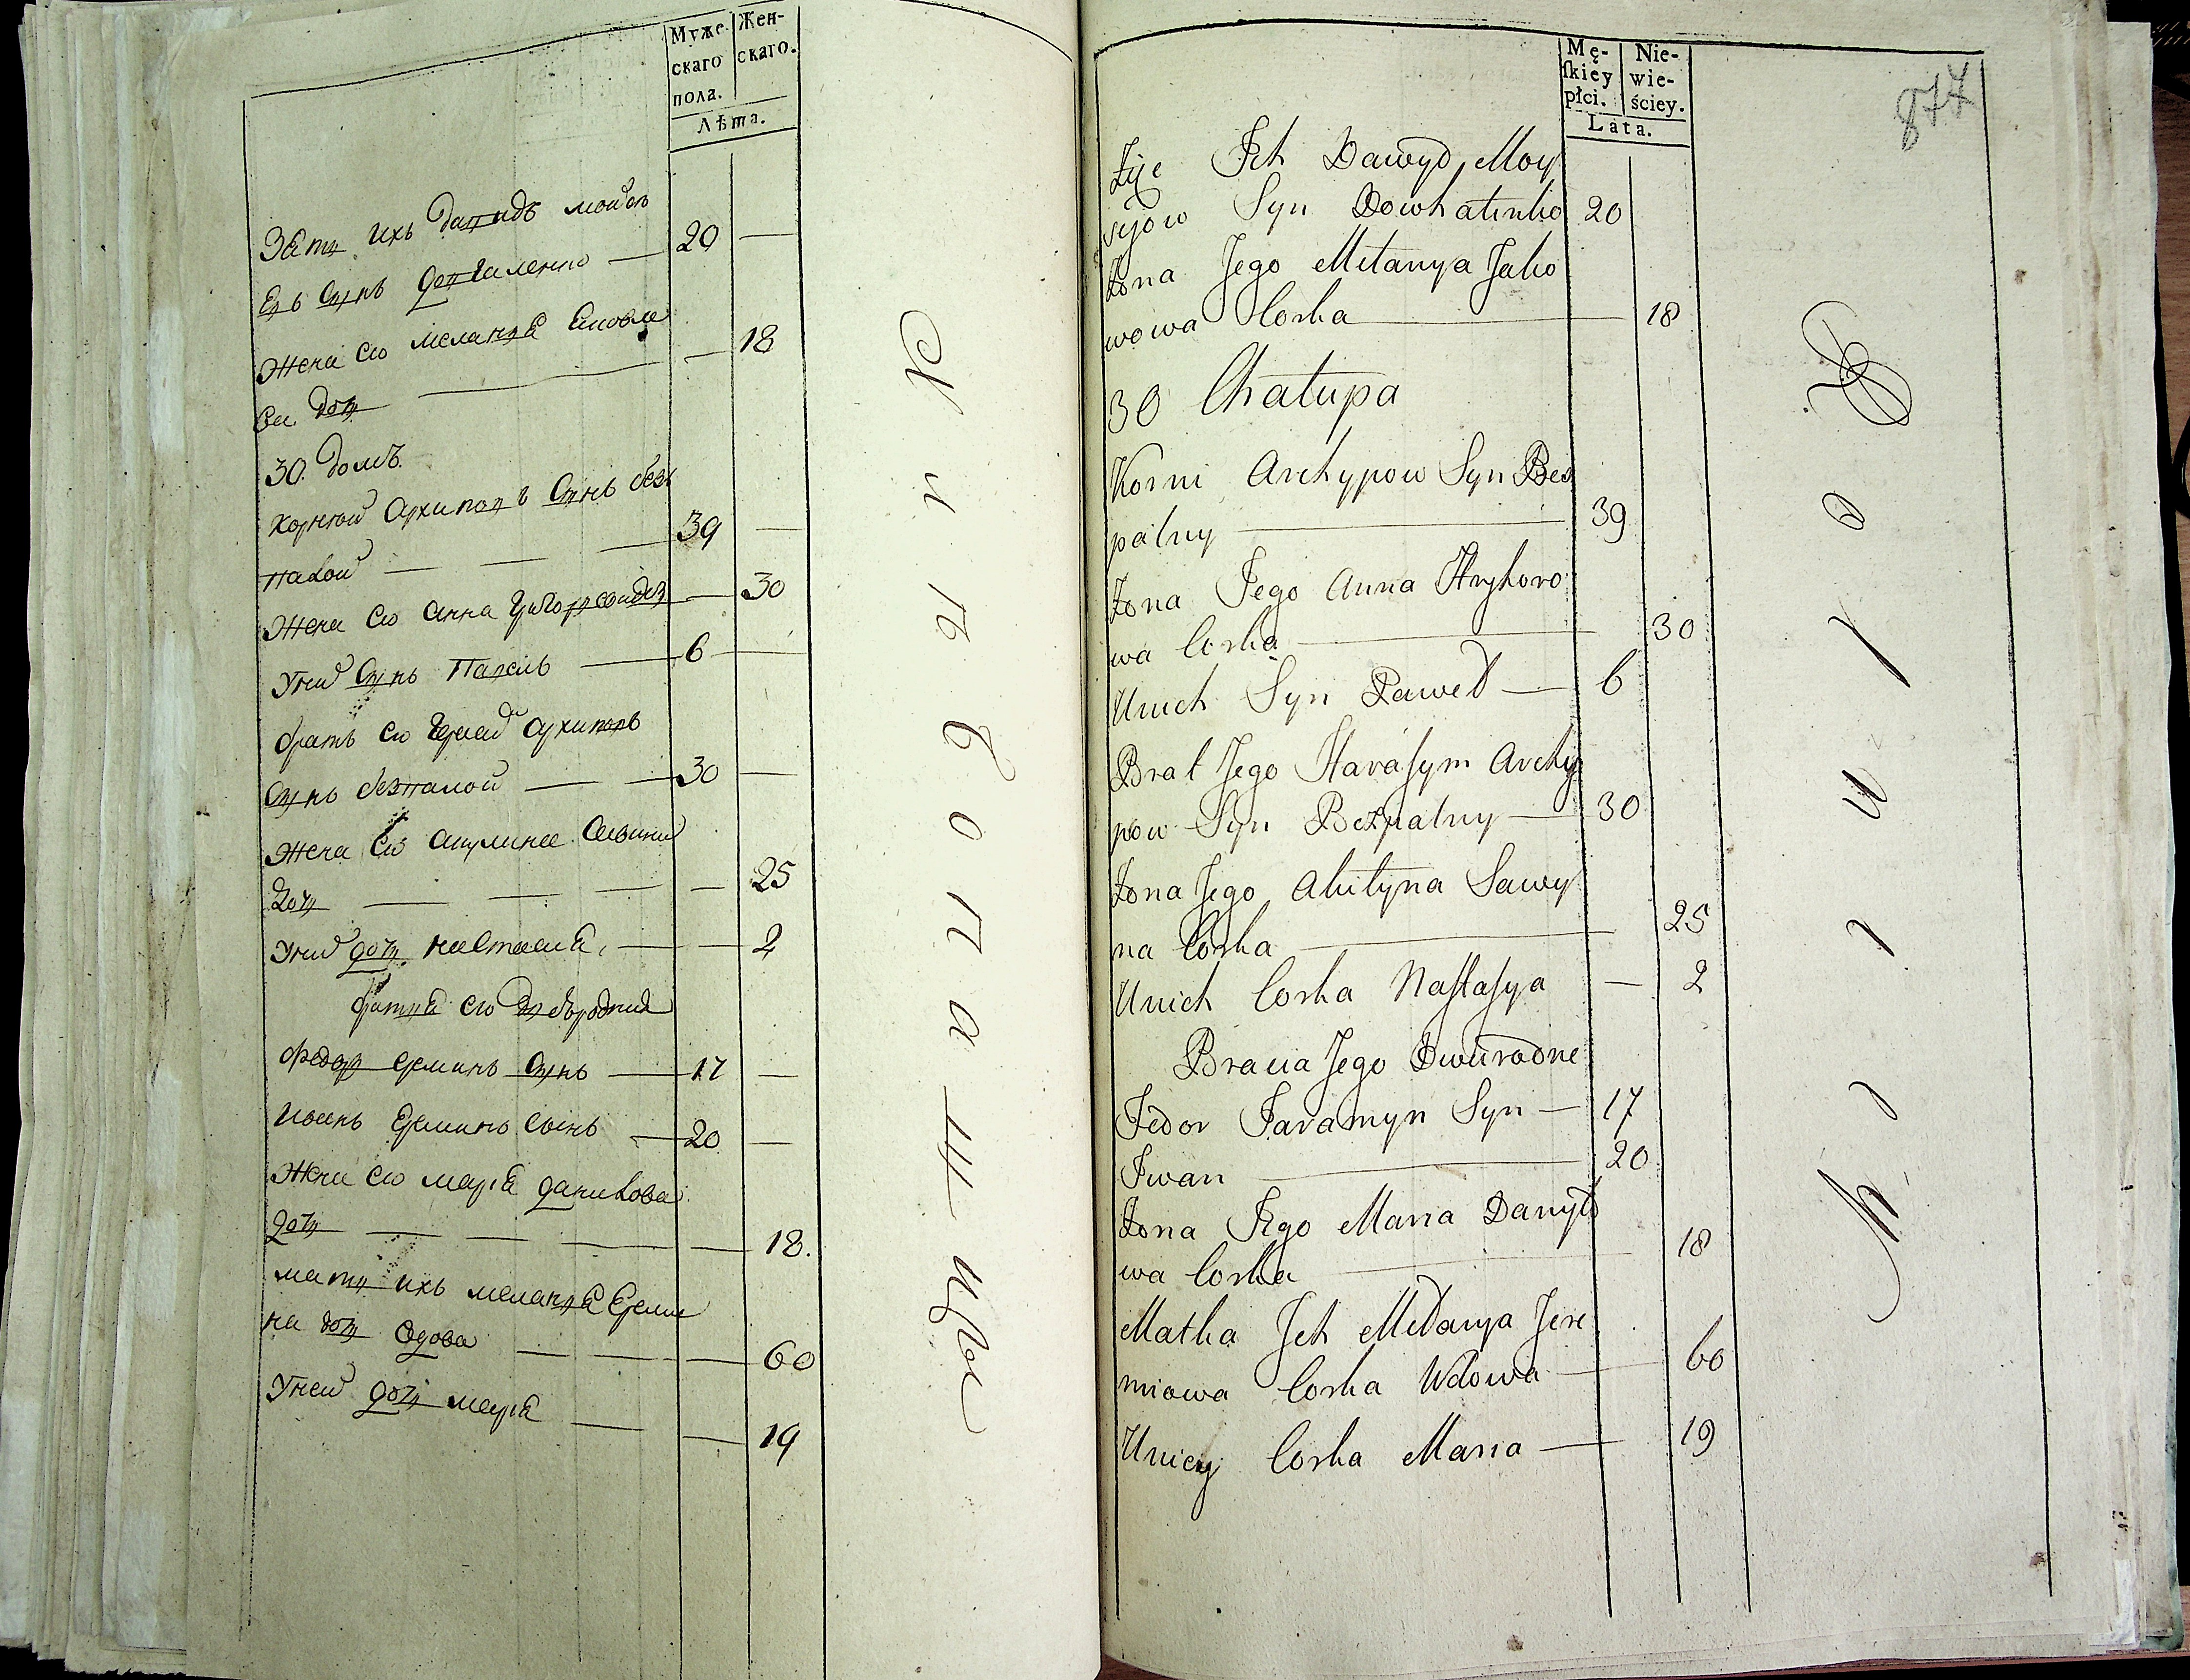 Муже-
скаго
пола.
Жен-
скаго.
Лѣта.
Зять ихъ Давидъ Мойсѣ
евъ Сынъ Довгаленко — 20 —
Жена его Меланья Яковле
ва дочь — 18
30. домъ.
Корней Архиповъ Сынъ без
палой — 39 —
Жена его Анна Григорова дочь — 30
У них Сынъ Павелъ — 6 —
братъ его Архиповъ
Сынъ безпалой — 30 —
Жена его Акулина Савина
дочь — 25
У них дочь Настасія — 2
братья его двубродния
Федоръ Еремин Сынъ — 17 —
Иванъ Еремин Сынъ — 20 —
Жена его Марія Данилова
дочь — 18.
мать ихъ Меланья Ереми
на дочь вдова — 60
У ней дочь Марія — 19
Mę-
skiey
płci.
Nie-
wie-
ściey.
Lata.
877
Ich Dawyd Moy
syjow Syn Dowhalenko 20
Żona Jego Melanya Jako
wowa Corka — 18
30 Chałupa
Korni Archypow Syn Bes
palny — 39
Żona Jego Anna Hryhoro
wa Corka — 30
Unich Syn Paweł — 6
Brat Jego Harasym Archy
pow Syn Bezpalny — 30
Żona Jego Akulyna Sawy
na Corka — 25
Unich Corka Nastasya — 2
Bracia Jego Dwurodne
Fedor Jaramyn Syn — 17
Iwan — 20
Żona Jego Maria Danyło
wa Corka — 18
Matka Ich Melanya Jere
miowa Corka Wdowa — 60
Uniey Corka Maria — 19